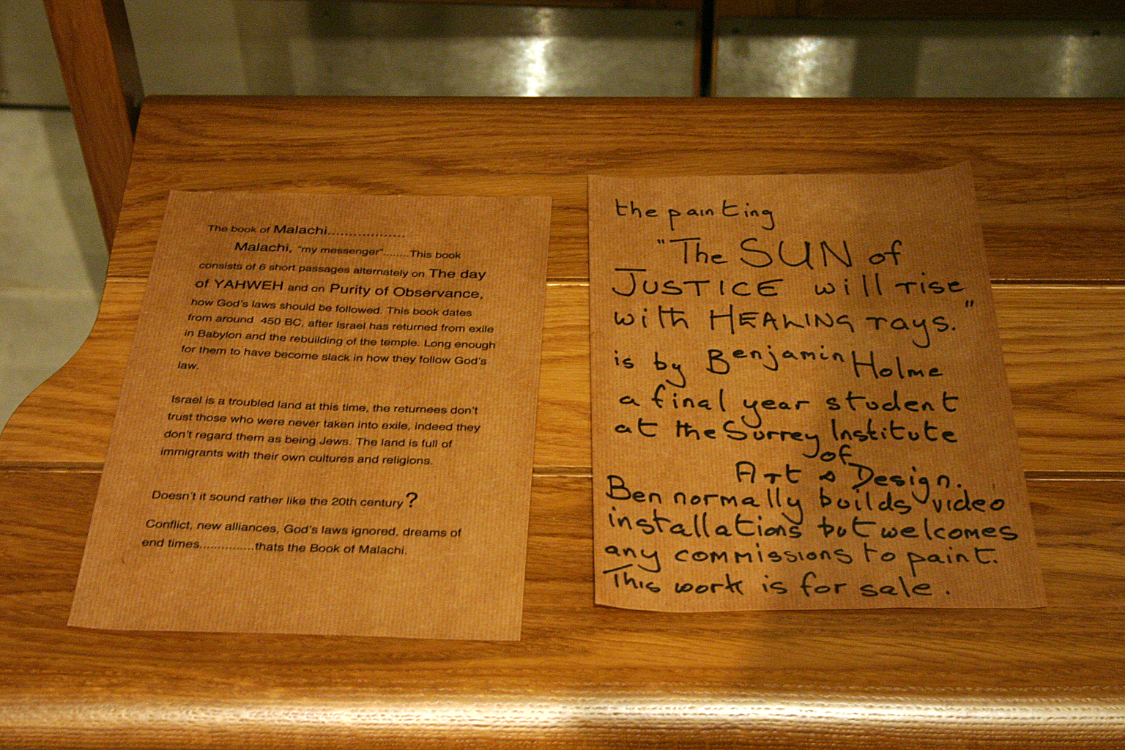 The book of Malachi..................
Malachi, "my messenger"........This book
consists of 6 short passages alternately on The day
of YAHWEH and on Purity of Observance,
how God's laws should be followed. This book dates
from around 450 BC, after Israel has returned from exile
in Babylon and the rebuilding of the temple. Long enough
for them to have become slack in how they follow God's
law.
Israel is a troubled land at this time, the returnees don't
trust those who were never taken into exile, indeed they
don't regard them as being Jews. The land is full of
immigrants with their own cultures and religions.
Doesn't it sound rather like the 20th century?
Conflict, new alliances, God's laws ignored, dreams of
end times...............thats the Book of Malachi.
the painting
"The SUN of
JUSTICE will rise
with HEALING rays."
is by Benjamin Holme
a final year student
at the Surrey Institute
of
Art & Design.
Ben normally builds video
installations but welcomes
any commissions to paint.
This work is for sale.